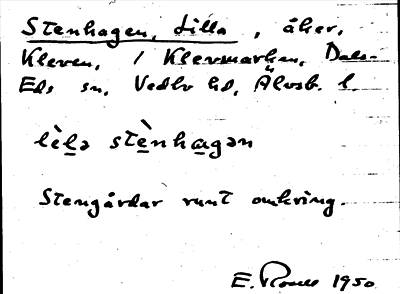 Stenhagen, Lilla, åker.
Kleven, / Klevmarken, Dals-
Eds sn, Vedbo hd, Älvsb. l.
lìlə stènhagən
Stengårdar runt omkring.
E. 1950